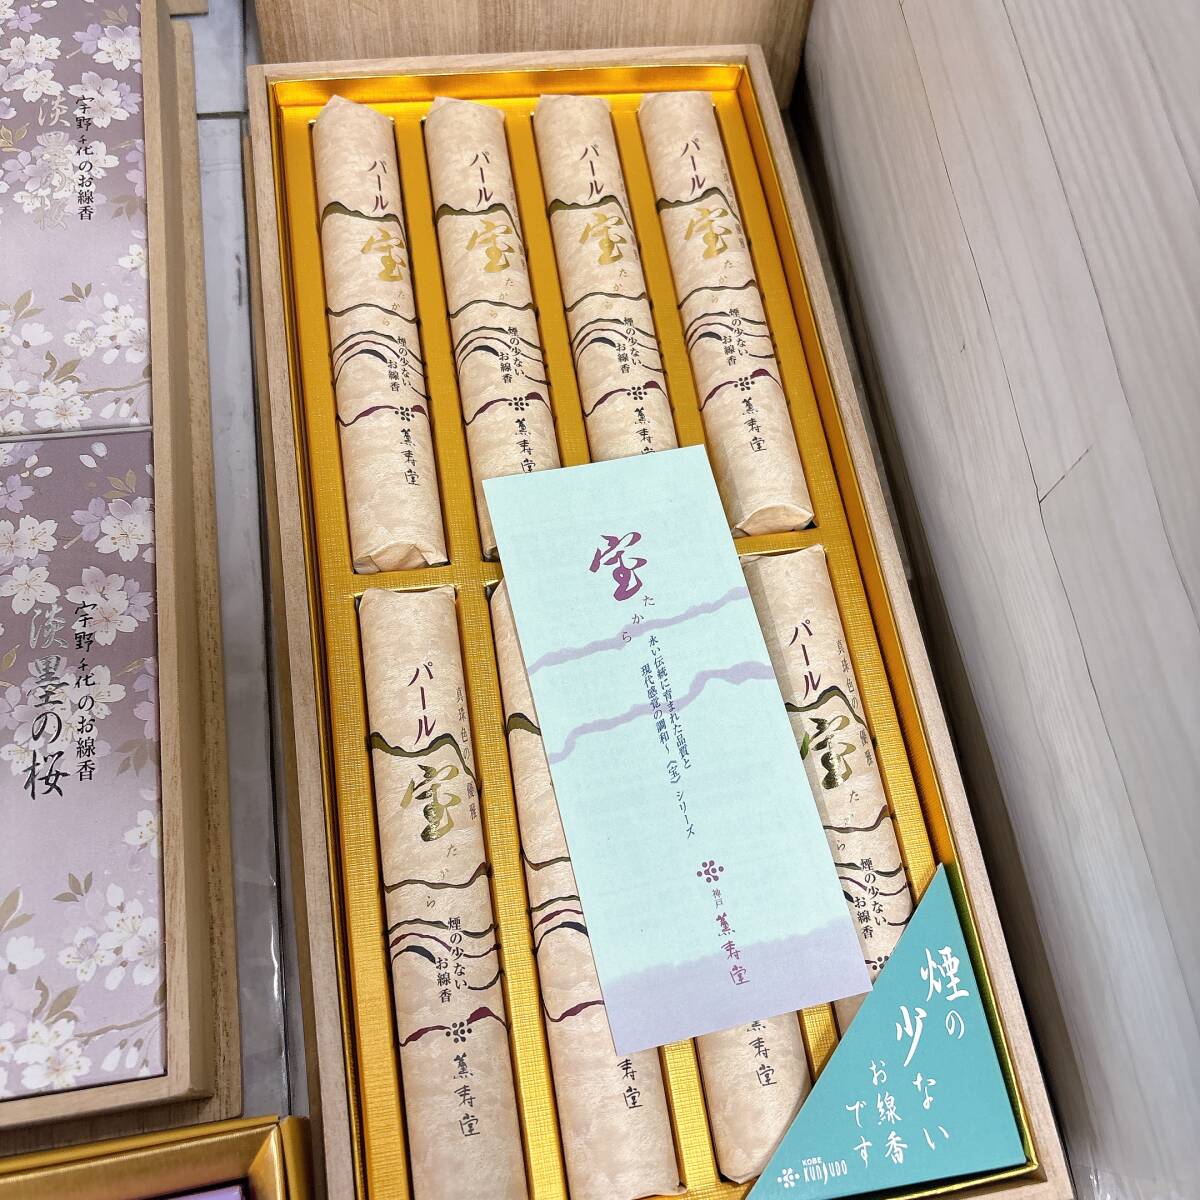 宇野千代のお線香
淡墨の桜
宇野千代のお線香
淡墨の桜
パール
宝
たから
煙の少ない
お線香
薫寿堂
パール
宝
たから
煙の少ない
お線香
薫寿堂
パール
宝
たから
煙の少ない
お線香
薫寿
パール
宝
たから
煙の少ない
お線香
薫寿堂
真珠色の優雅
パール
宝
たから
煙の少ない
お線香
薫寿堂
薫寿堂
真珠色の優雅
パール
宝
たから
煙の少ない
お線香
薫寿堂
宝
たから
永い伝統に育まれた品質と
現代感覚の調和〜〈宝〉シリーズ
神戸
薫寿堂
煙の
少ない
お線香
です
KOBE
KUNJUDO